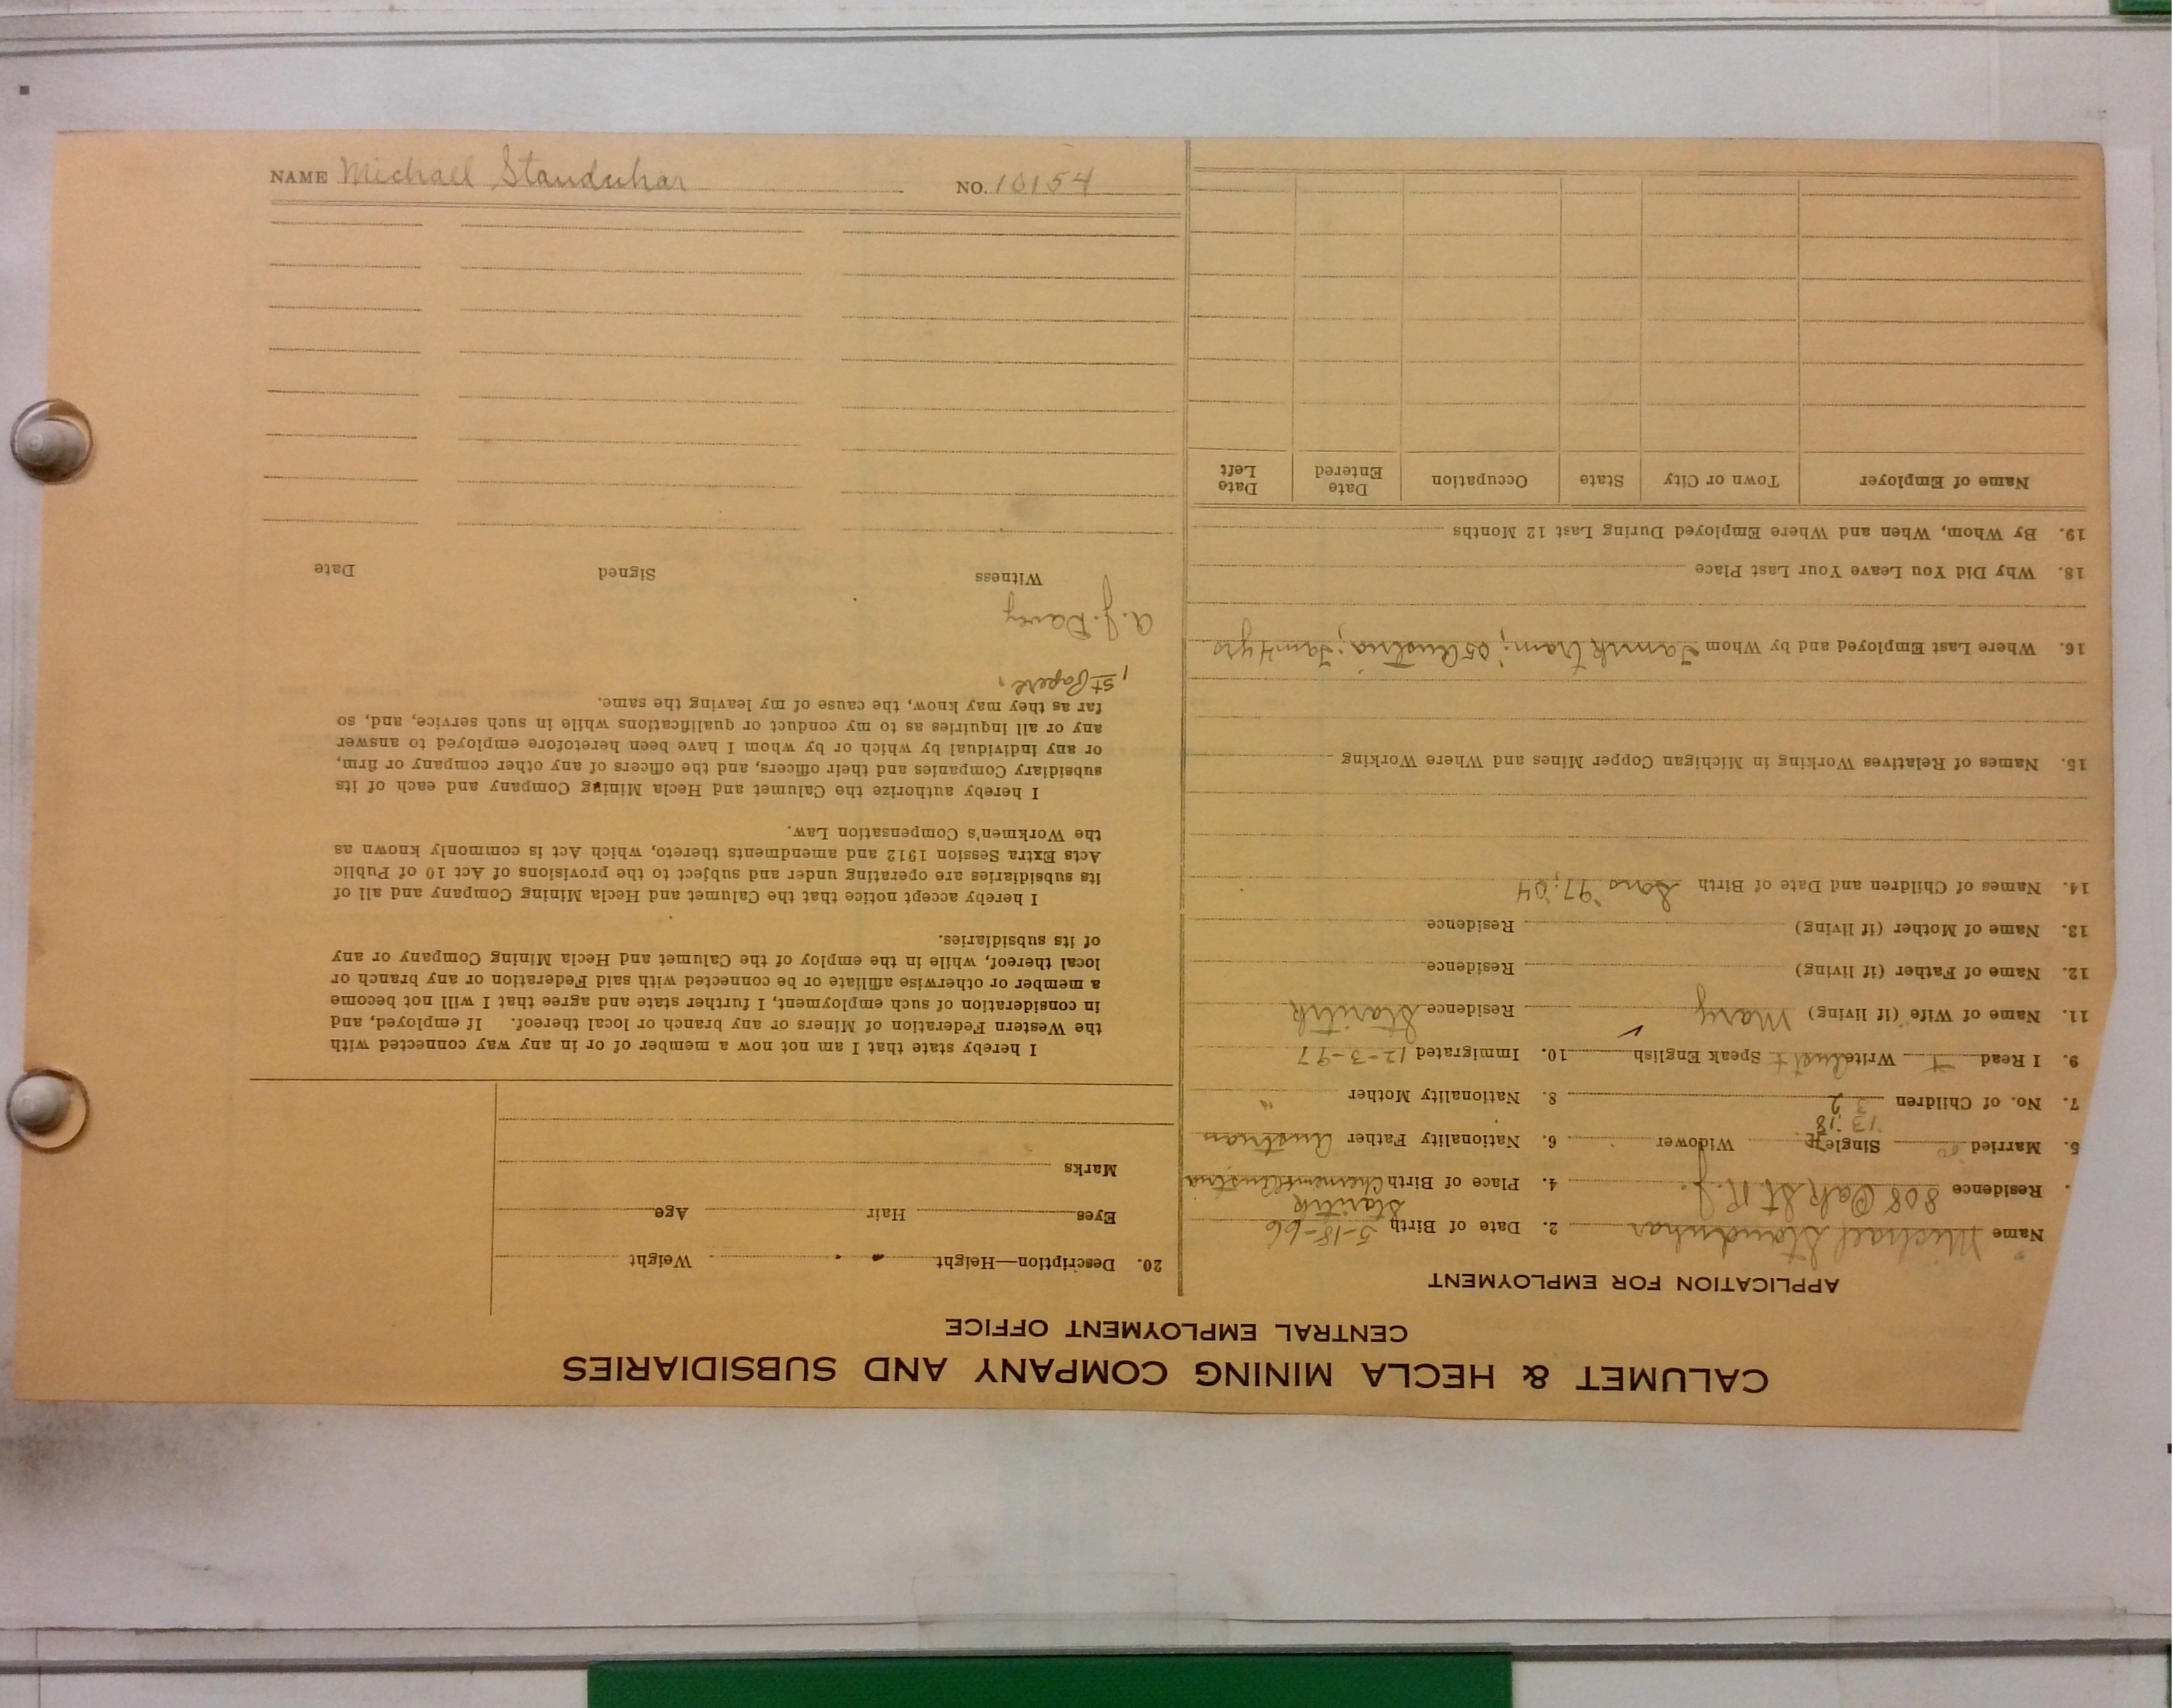 NAME Michael Standuhar NO. 10154
CALUMET & HECLA MINING COMPANY AND SUBSIDIARIES
CENTRAL EMPLOYMENT OFFICE
APPLICATION FOR EMPLOYMENT
Name Michael Standuhar 2. Date of Birth 5-18-66
Residence 808 Oak St R.J. 4. Place of Birth Austria
Staritrk
5. Married Single Widower 6. Nationality Father Austrian
13 18
7. No. of Children 3 2 8. Nationality Mother "
9. I Read + Write + Speak English ✓ 10. Immigrated 12-3-97
11. Name of Wife (if living) Mary Residence Staritrk
12. Name of Father (if living) Residence
13. Name of Mother (if living) Residence
14. Names of Children and Date of Birth Sons 97; 04
15. Names of Relatives Working in Michigan Copper Mines and Where Working
16. Where Last Employed and by Whom Tamrk tram; '05 Austria; Tam 4 yrs
18. Why Did You Leave Your Last Place
19. By Whom, When and Where Employed During Last 12 Months
Name of Employer Town or City State Occupation Date Entered Date Left
20. Description—Height Weight
Eyes Hair Age
Marks
I hereby state that I am not now a member of or in any way connected with
the Western Federation of Miners or any branch or local thereof. If employed, and
in consideration of such employment, I further state and agree that I will not become
a member or otherwise affiliate or be connected with said Federation or any branch or
local thereof, while in the employ of the Calumet and Hecla Mining Company or any
of its subsidiaries.
I hereby accept notice that the Calumet and Hecla Mining Company and all of
its subsidiaries are operating under and subject to the provisions of Act 10 of Public
Acts Extra Session 1912 and amendments thereto, which Act is commonly known as
the Workmen's Compensation Law.
I hereby authorize the Calumet and Hecla Mining Company and each of its
subsidiary Companies and their officers, and the officers of any other company or firm,
or any individual by which or by whom I have been heretofore employed to answer
any or all inquiries as to my conduct or qualifications while in such service, and, so
far as they may know, the cause of my leaving the same.
1st Papers
A. J. Davey
Witness Signed Date